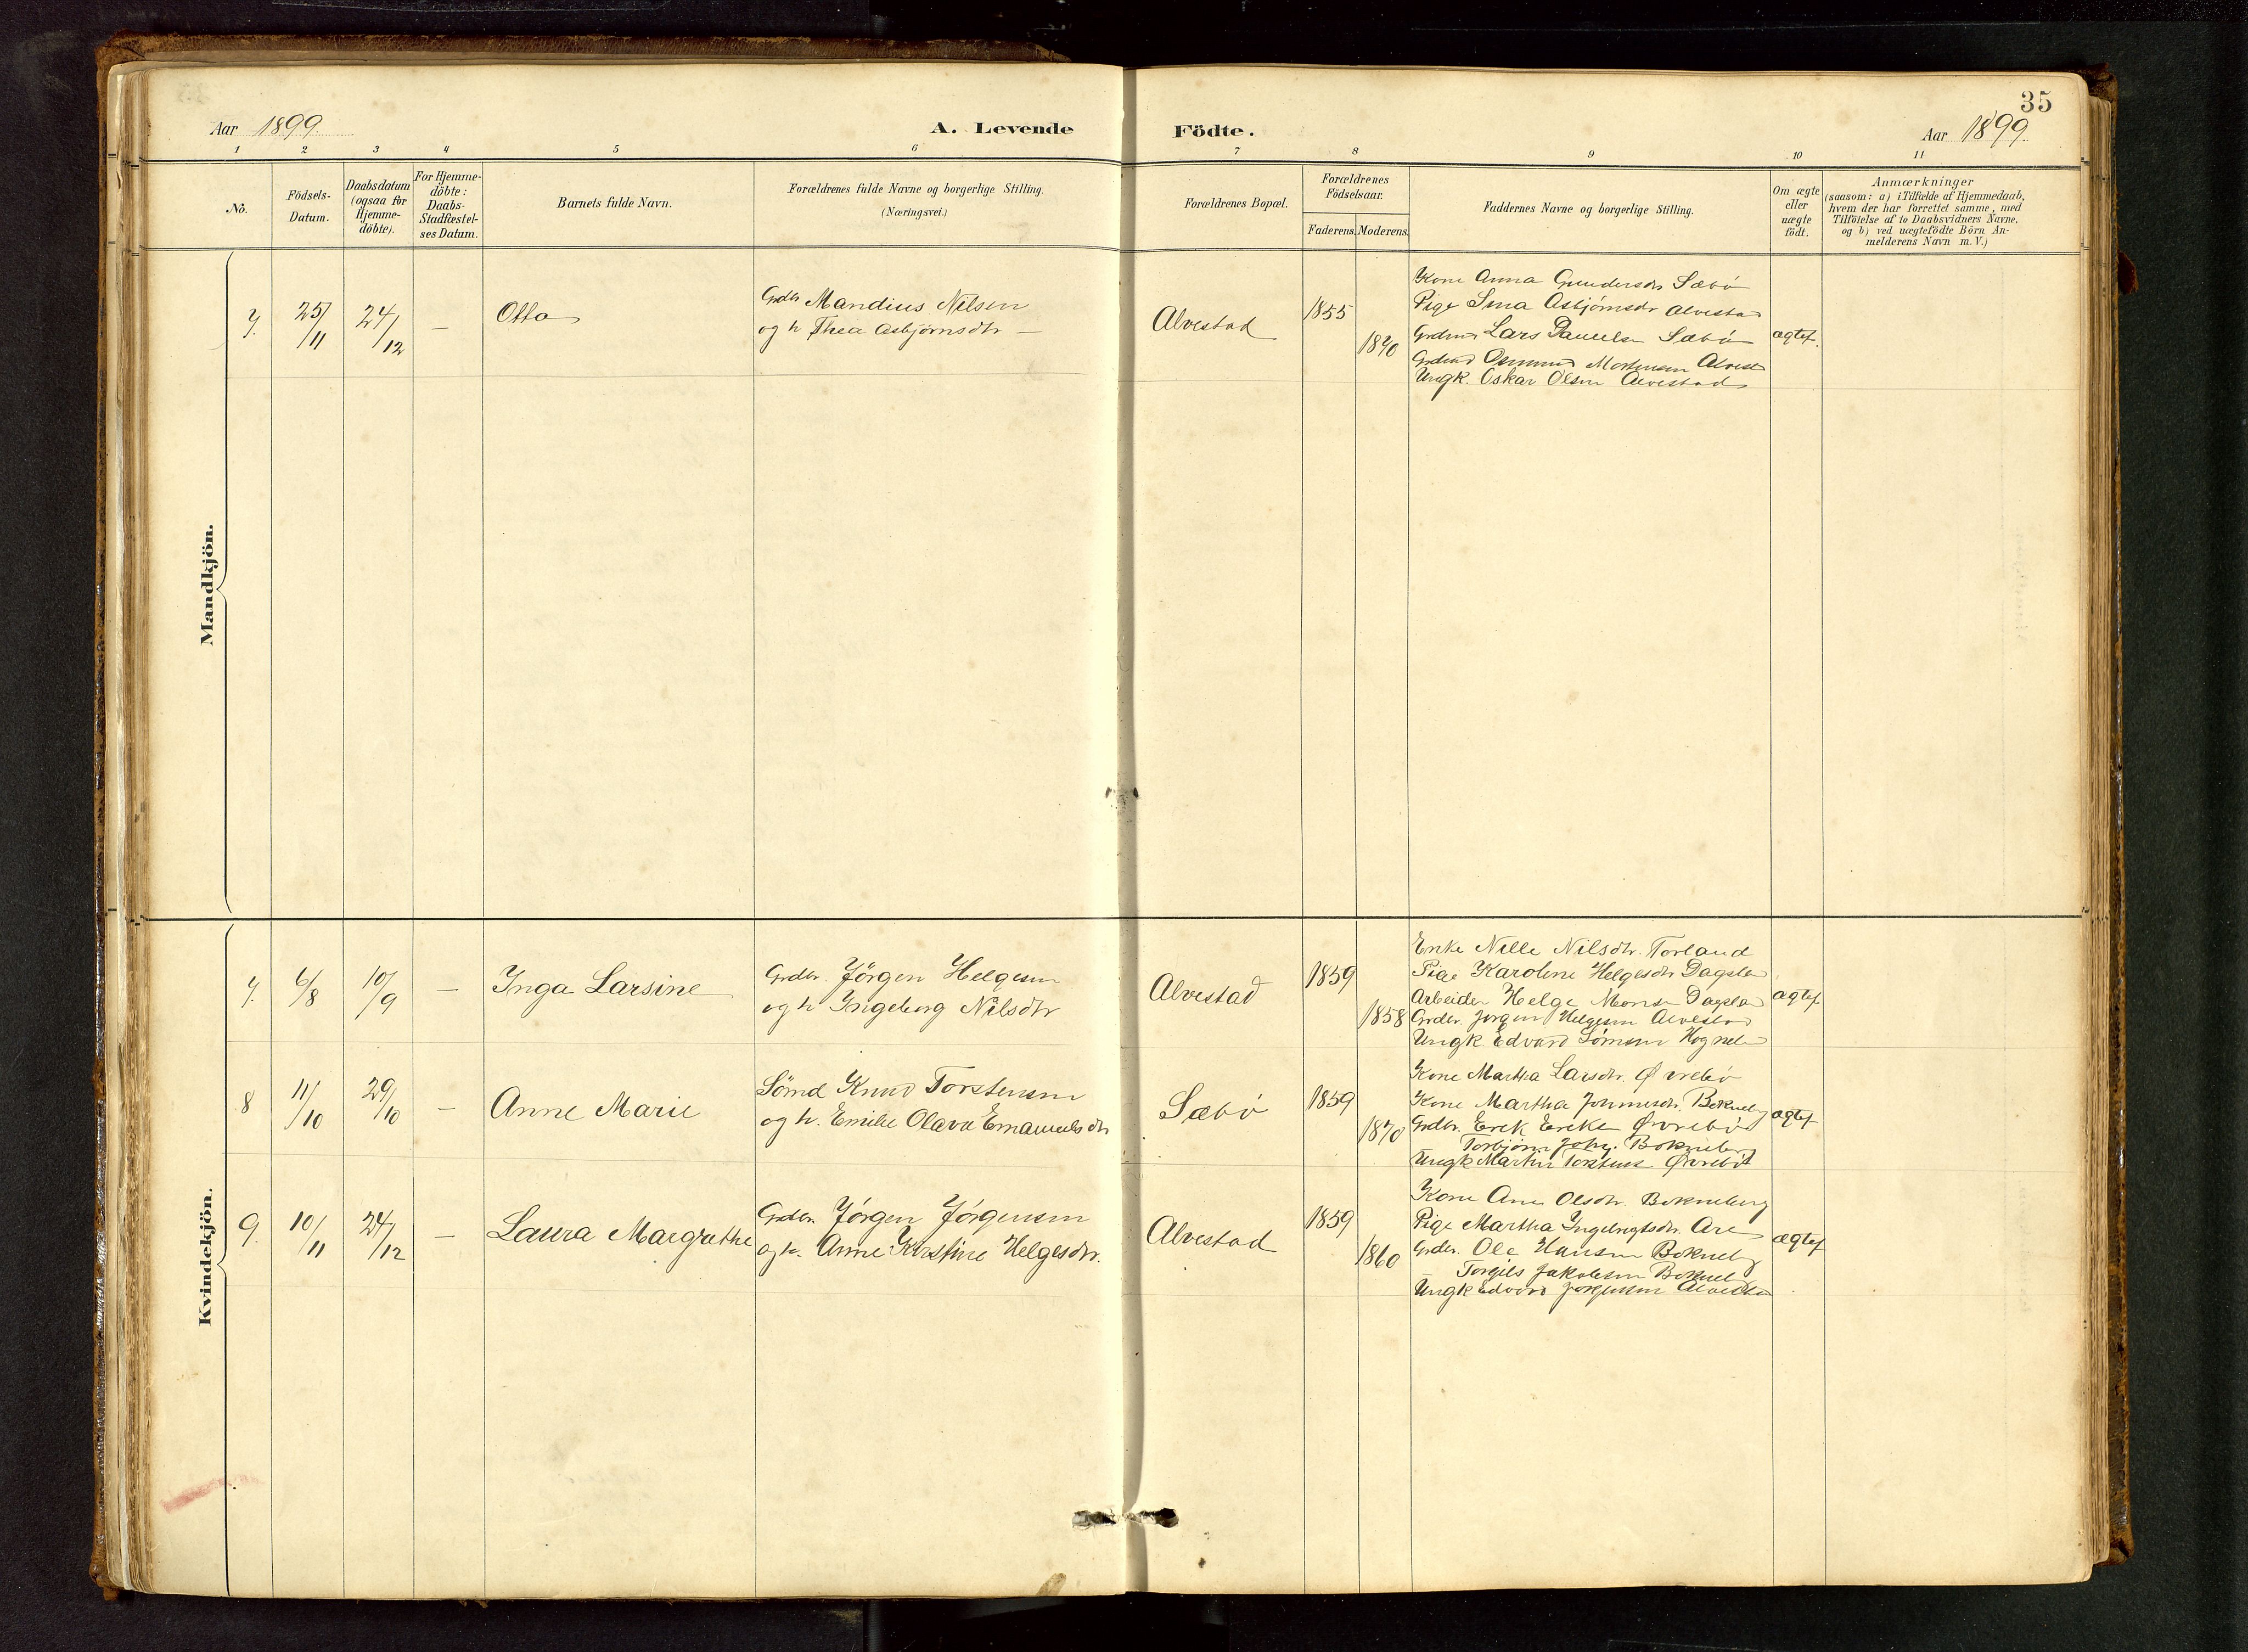 35
Aar 1899.
A. Levende Födte.
Aar 1899.
1 2 3 4 5 6 7 8 9 10 11
No.
Födsels-
Datum.
Daabsdatum
(ogsaa for
Hjemme-
döbte).
For Hjemme-
döbte:
Daabs-
Stadfæstel-
ses Datum.
Barnets fulde Navn.
Forældrenes fulde Navne og borgerlige Stilling.
(Næringsvei.)
Forældrenes Bopæl.
Forældrenes
Födselsaar.
Faderens. Moderens.
Faddernes Navne og borgerlige Stilling.
Om ægte
eller
uægte
födt.
Anmærkninger
(saasom: a) i Tilfælde af Hjemmedaab,
hvem der har forrettet samme, med
Tilföielse af to Daabsvidners Navne,
og b) ved uægtefödte Börn An-
melderens Navn m. V.)
Mandkjön.
7. 25/11 24/12 — Otto
Grdbr Mandius Nilsen
og h Thea Asbjørnsdtr —
Alvestad
1855
1870
Kone Anna Gundersdtr Sæbö
Pige Sina Asbjörnsdr Alvestad
Lars Sæbö
Mortensen Alvest
Ungk. Oskar Olsen Alvestad
ægtef.
Kvindekjön.
7. 6/8 10/9 — Inga Larsine
Grdbr. Jörgen Helgesen
og h Ingeborg Nilsdtr
Alvestad
1859
1858
Enke Nille Nilsdtr. Torland
Pige Karoline Helgesdtr Dagsla
Arbeider Helge Monsen Dagsla
Grdbr. Jørgen Helgesen Alvestad
Ungk. Edvard
ægtef
8 11/10 29/10 — Anne Marie
Sömd Knud Torstensen
og h. Emilie Olava Emanuelsdtr
Sæbö
1859
1870
Kone Martha Larsdtr. Øvrebö
Kone Martha Bokneb
Grdbr. Erek Øvrebö
Torbjörn Bokneberg
Ungk Martin Torstens Øvrebö
ægtef
9. 10/11 24/12 — Laura Margrethe
Grdbr. Jörgen Jörgensen
og h. Anne Kirstine Helgesdtr.
Alvestad
1859
1860
Kone Ane Olsdtr. Bokneberg
Pige Martha Ingebrigtsdtr. Are
Grdbr. Ole Hansen Bokneb
Torgils Jakobsen Bokneb
Ungk Edvard Jørgensen Alvestad
ægtef